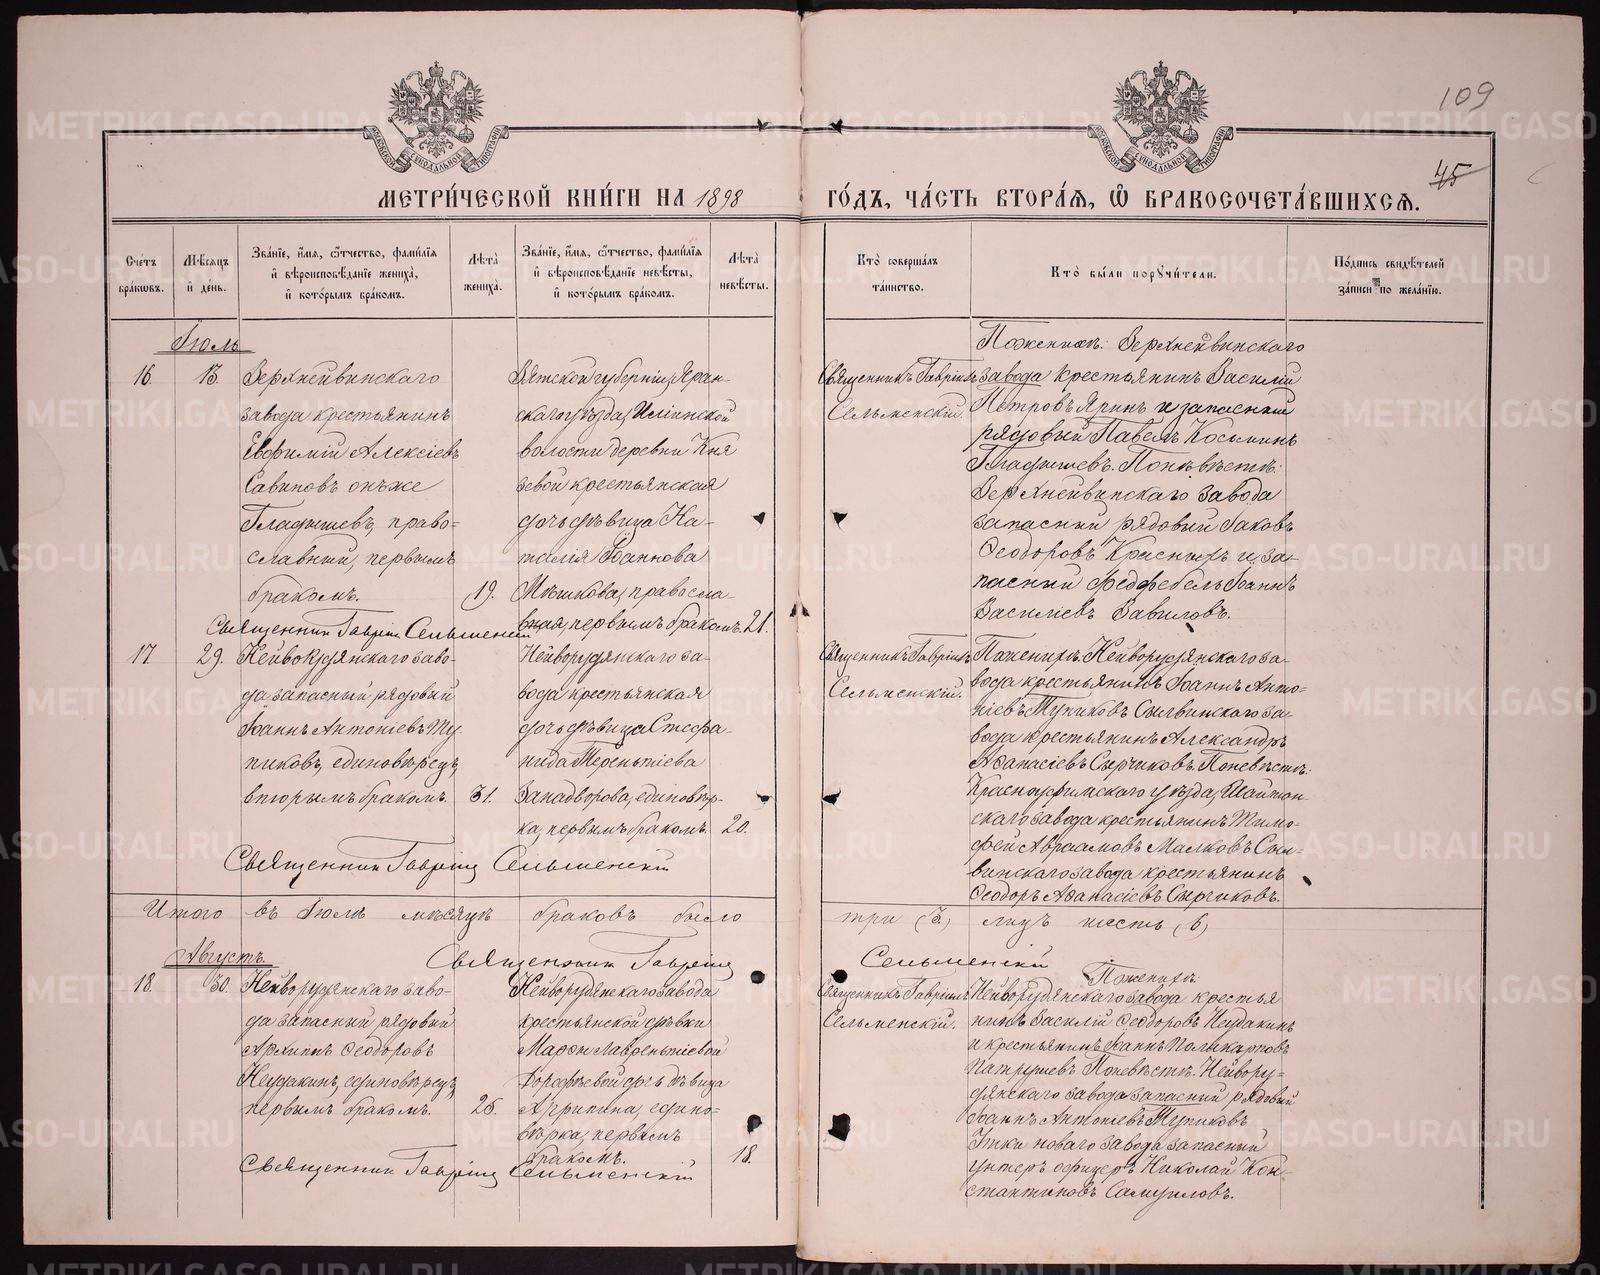 109
45
МЕТРИ́ЧЕСКОЙ КНИ́ГИ НА 1898
ГО́ДЪ, ЧА́СТЬ ВТОРА́Я, Ѡ БРАКОСОЧЕТА́ВШИХСЯ.
Сче́тъ бра́ковъ.
Мѣ́сяцъ и́ день.
Зва́нїе, и́мя, ѻ҆́тчество, фами́лїя и҆ вѣроисповѣ́данїе жениха̀, и҆ кото́рымъ бра́комъ.
Лѣ́та̀ жениха̀.
Зва́нїе, и́мя, ѻ҆́тчество, фами́лїя и҆ вѣроисповѣ́данїе невѣ́сты, и҆ кото́рымъ бра́комъ.
Лѣ́та̀ невѣ́сты.
Кто̀ соверша́лъ та́инство.
Кто̀ бы́ли порꙋчи́тели.
По́дпись свидѣ́телей за́писи по жела́нїю.
Іюль
16.
13.
Верхнейвинскаго
завода крестьянинъ
Евфимій Алексіевъ
Савиновъ онъже
Гладышевъ, право=
славный, первымъ
бракомъ.
19.
Вятской губерніи, Яран-
скаго уѣзда, Иліинской
волости деревни Кня
зевой крестьянская
дочь дѣвица На-
талія Іоаннова
Мѣшкова, правосла-
вная, первымъ бракомъ.
21.
Священникъ Гавріилъ
Сельменскій.
Поженихѣ: Верхнейвинскаго
завода крестьянинъ Василій
Петровъ Яринъ и запасный
рядовый Павелъ Косминъ
Гладышевъ. Поневѣстѣ:
Верхнейвинскаго завода
запасный рядовый Іаковъ
Ѳеодоровъ Красныхъ и за-
пасный фельдфебель Іоаннъ
Василіевъ Вавиловъ.
Священникъ Гавріилъ Сельменскій
17.
29.
Нейворудянскаго заво-
да запасный рядовый
Іоаннъ Антоніевъ Ту-
пиковъ, единовѣрецъ,
вторымъ бракомъ.
31.
Нейворудянскаго за-
вода крестьянская
дочь дѣвица Стефа-
нида Терентіева
Западворова, единовѣр-
ка, первымъ бракомъ.
20.
Священникъ Гавріилъ
Сельменскій.
Поженихѣ. Нейворудянскаго за-
вода крестьянинъ Іоаннъ Анто-
ніевъ Тупиковъ Сылвинскаго за-
вода крестьянинъ Александръ
Аѳанасіевъ Сырчиковъ. Поневѣстѣ:
Красноуфимскаго уѣзда, Шайтан-
скаго завода крестьянинъ Тимо-
фей Авраамовъ Малковъ Сыл-
винскаго завода крестьянинъ
Ѳеодоръ Аѳанасіевъ Сырчиковъ.
Священникъ Гавріилъ Сельменскій
Итого въ Іюлѣ мѣсяцѣ браковъ было
три (3.) лицъ шесть (6)
Священникъ Гавріилъ
Сельменскій
Августъ.
18.
30.
Нейворудянскаго заво-
да запасный рядовый
Архиппъ Ѳеодоровъ
Неудакинъ, единовѣрецъ,
первымъ бракомъ.
25.
Нейворудянскаго завода
крестьянской дѣвки
Марѳы Лаврентіевой
Дороѳеевой дочь дѣвица
Агриппина, едино=
вѣрка, первымъ
бракомъ.
18.
Священникъ Гавріилъ
Сельменскій.
Поженихѣ.
Нейворудянскаго завода крестья
нинъ Василій Ѳеодоровъ Неудакинъ
и крестьянинъ Іоаннъ Поликарповъ
Патрушевъ Поневѣстѣ. Нейвору-
дянскаго завода запасный рядовый
Іоаннъ Антоніевъ Тупиковъ
Уткинскаго завода запасный
унтеръ офицеръ Николай Кон-
стантиновъ Самуиловъ.
Священникъ Гавріилъ Сельменскій
METRIKI.GASO-URAL.RU